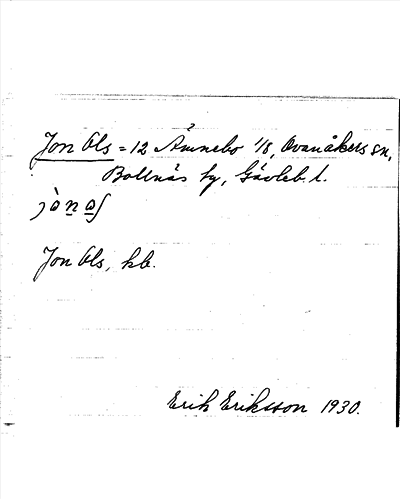 Jon Ols = 12 Ämnebo 1/8, Ovanåkers sn,
Bollnäs hy, Gävleb. l.
Jon Ols, kb.
Erik Eriksson 1930.